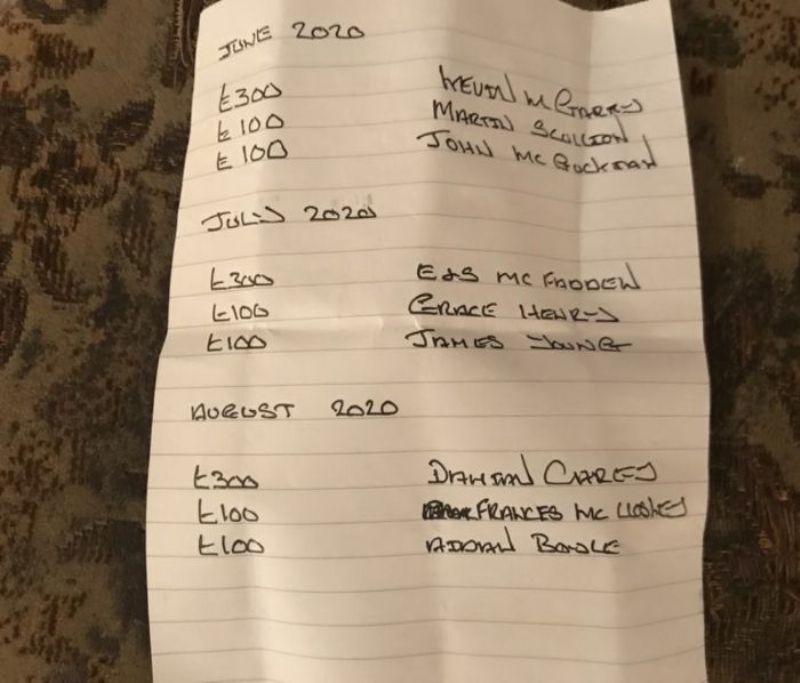 JUNE 2020
£300 KEVIN McGARRY
£100 MARTIN SCULLION
£100 JOHN MC
JULY 2020
£300 E&S MC FADDEN
£100 GRACE HENRY
£100 JAMES YOUNG
AUGUST 2020
£300 DAMIAN CAREY
£100 FRANCES MC CLOSKEY
£100 AIDAN BOYLE